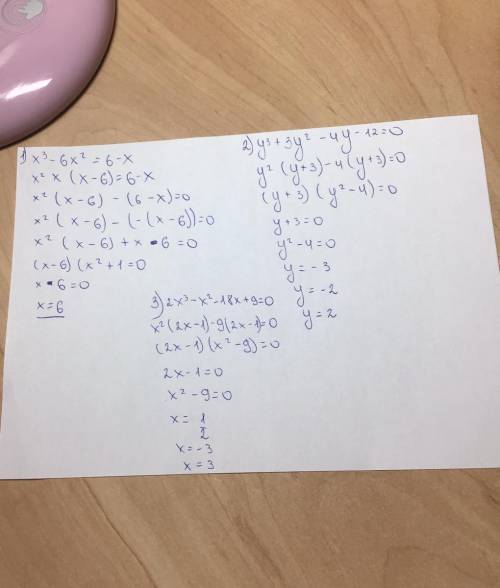 1) x³ - 6x² = 6 - x
x² × (x - 6) = 6 - x
x² (x - 6) - (6 - x) = 0
x² (x - 6) - (-(x - 6)) = 0
x² (x - 6) + x - 6 = 0
(x - 6) (x² + 1 = 0
x - 6 = 0
x = 6
2) y³ + 3y² - 4y - 12 = 0
y² (y + 3) - 4 (y + 3) = 0
(y + 3) (y² - 4) = 0
y + 3 = 0
y² - 4 = 0
y = - 3
y = - 2
y = 2
3) 2x³ - x² - 18x + 9 = 0
x² (2x - 1) - 9 (2x - 1) = 0
(2x - 1) (x² - 9) = 0
2x - 1 = 0
x² - 9 = 0
x = 1/2
x = - 3
x = 3